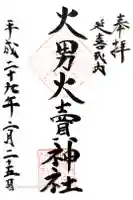 奉拝
延喜式内
火男火賣神社
平成二十九年二月二十五日